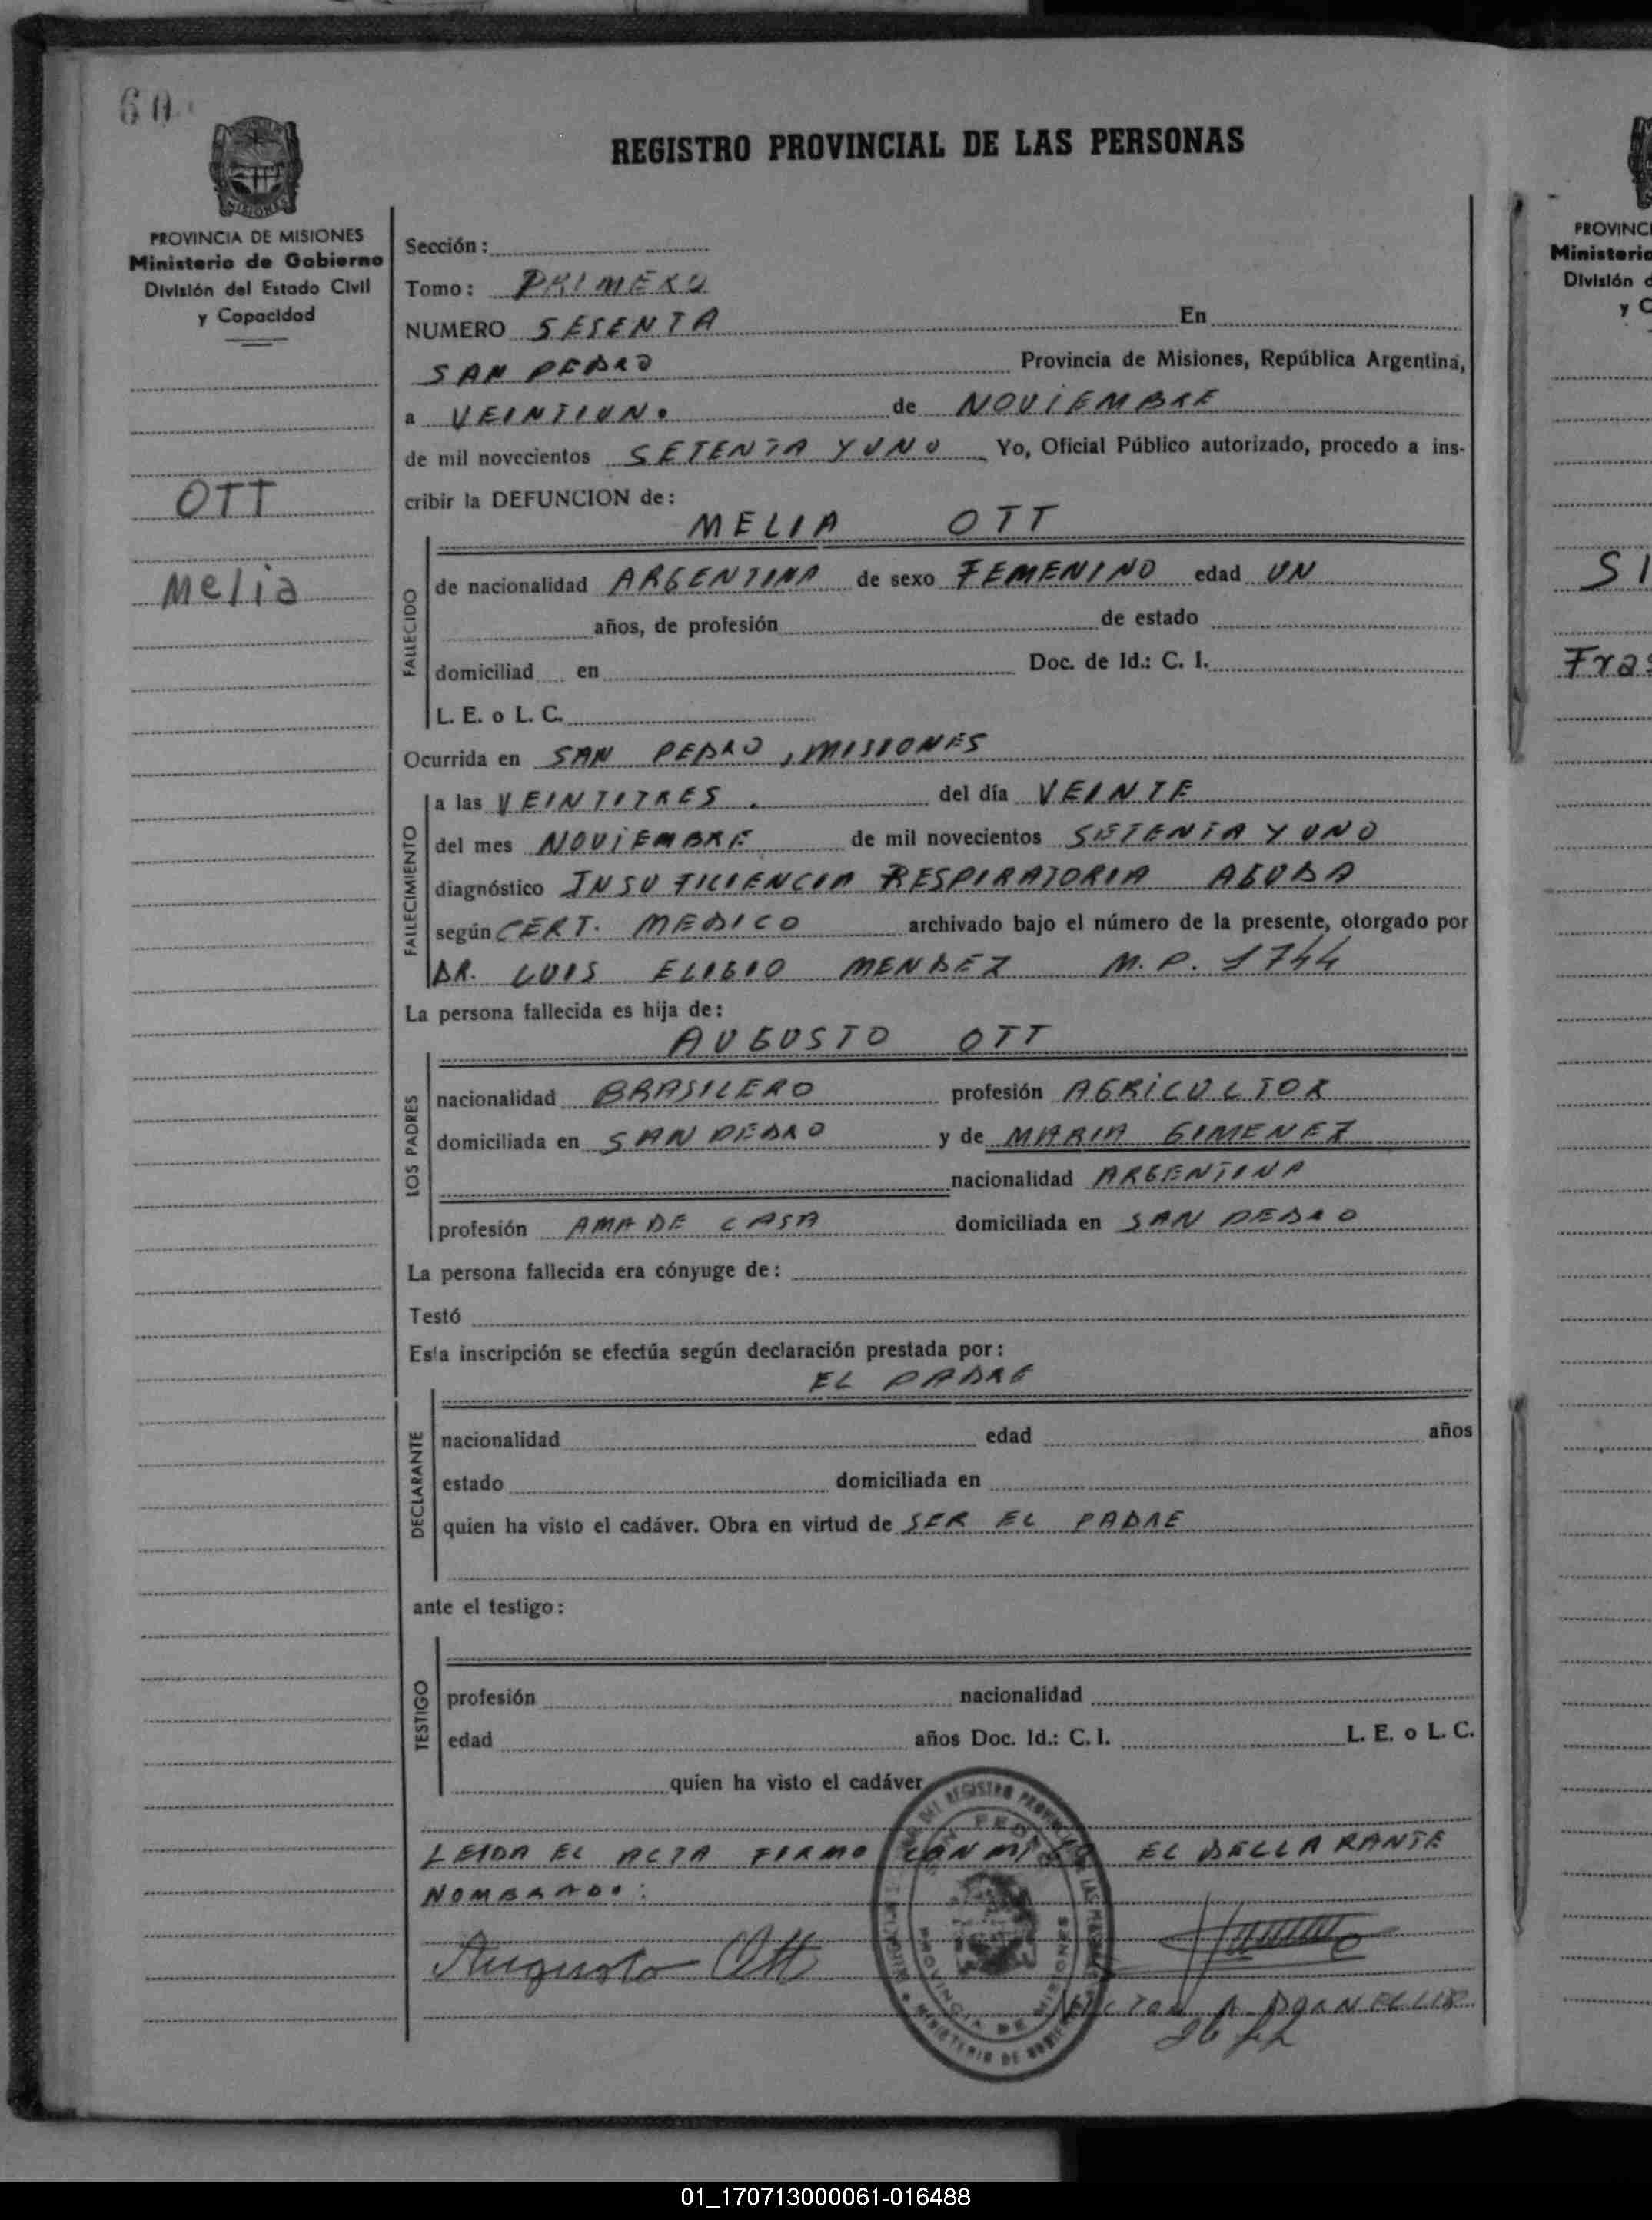 60
REGISTRO PROVINCIAL DE LAS PERSONAS
MISIONES
PROVINCIA DE MISIONES
Ministerio de Gobierno
División del Estado Civil
y Capacidad
OTT
Melia
Sección:
Tomo: PRIMERO
NUMERO SESENTA En
SAN PEDRO Provincia de Misiones, República Argentina,
a VEINTIUN. de NOVIEMBRE
de mil novecientos SETENTA Y UNO Yo, Oficial Público autorizado, procedo a ins-
cribir la DEFUNCION de:
MELIA OTT
FALLECIDO
de nacionalidad ARGENTINA de sexo FEMENINO edad UN
años, de profesión de estado
domiciliad en Doc. de Id.: C. I.
L. E. o L. C.
Ocurrida en SAN PEDRO, MISIONES
FALLECIMIENTO
a las VEINTITRES. del día VEINTE
del mes NOVIEMBRE de mil novecientos SETENTA Y UNO
diagnóstico INSUFICIENCIA RESPIRATORIA AGUDA
según CERT. MEDICO archivado bajo el número de la presente, otorgado por
DR. LUIS ELIGIO MENDEZ M. P. 1744
La persona fallecida es hija de:
AUGUSTO OTT
LOS PADRES
nacionalidad BRASILERO profesión AGRICULTOR
domiciliada en SAN PEDRO y de MARIA GIMENEZ
nacionalidad ARGENTINA
profesión AMA DE CASA domiciliada en SAN PEDRO
La persona fallecida era cónyuge de:
Testó
Esta inscripción se efectúa según declaración prestada por:
EL PADRE
DECLARANTE
nacionalidad edad años
estado domiciliada en
quien ha visto el cadáver. Obra en virtud de SER EL PADRE
ante el testigo:
TESTIGO
profesión nacionalidad
edad años Doc. Id.: C. I. L. E. o L. C.
quien ha visto el cadáver
LEIDA EL ACTA FIRMO CONMIGO EL DECLARANTE
NOMBRADO:
Augusto Ott
DEL REGISTRO PROVINCIAL DE LAS PERSONAS
SAN PEDRO
PROVINCIA DE MISIONES
MINISTERIO DE GOBIERNO
PROVINC
Ministerio
División d
y C
SI
Fras
01_170713000061-016488